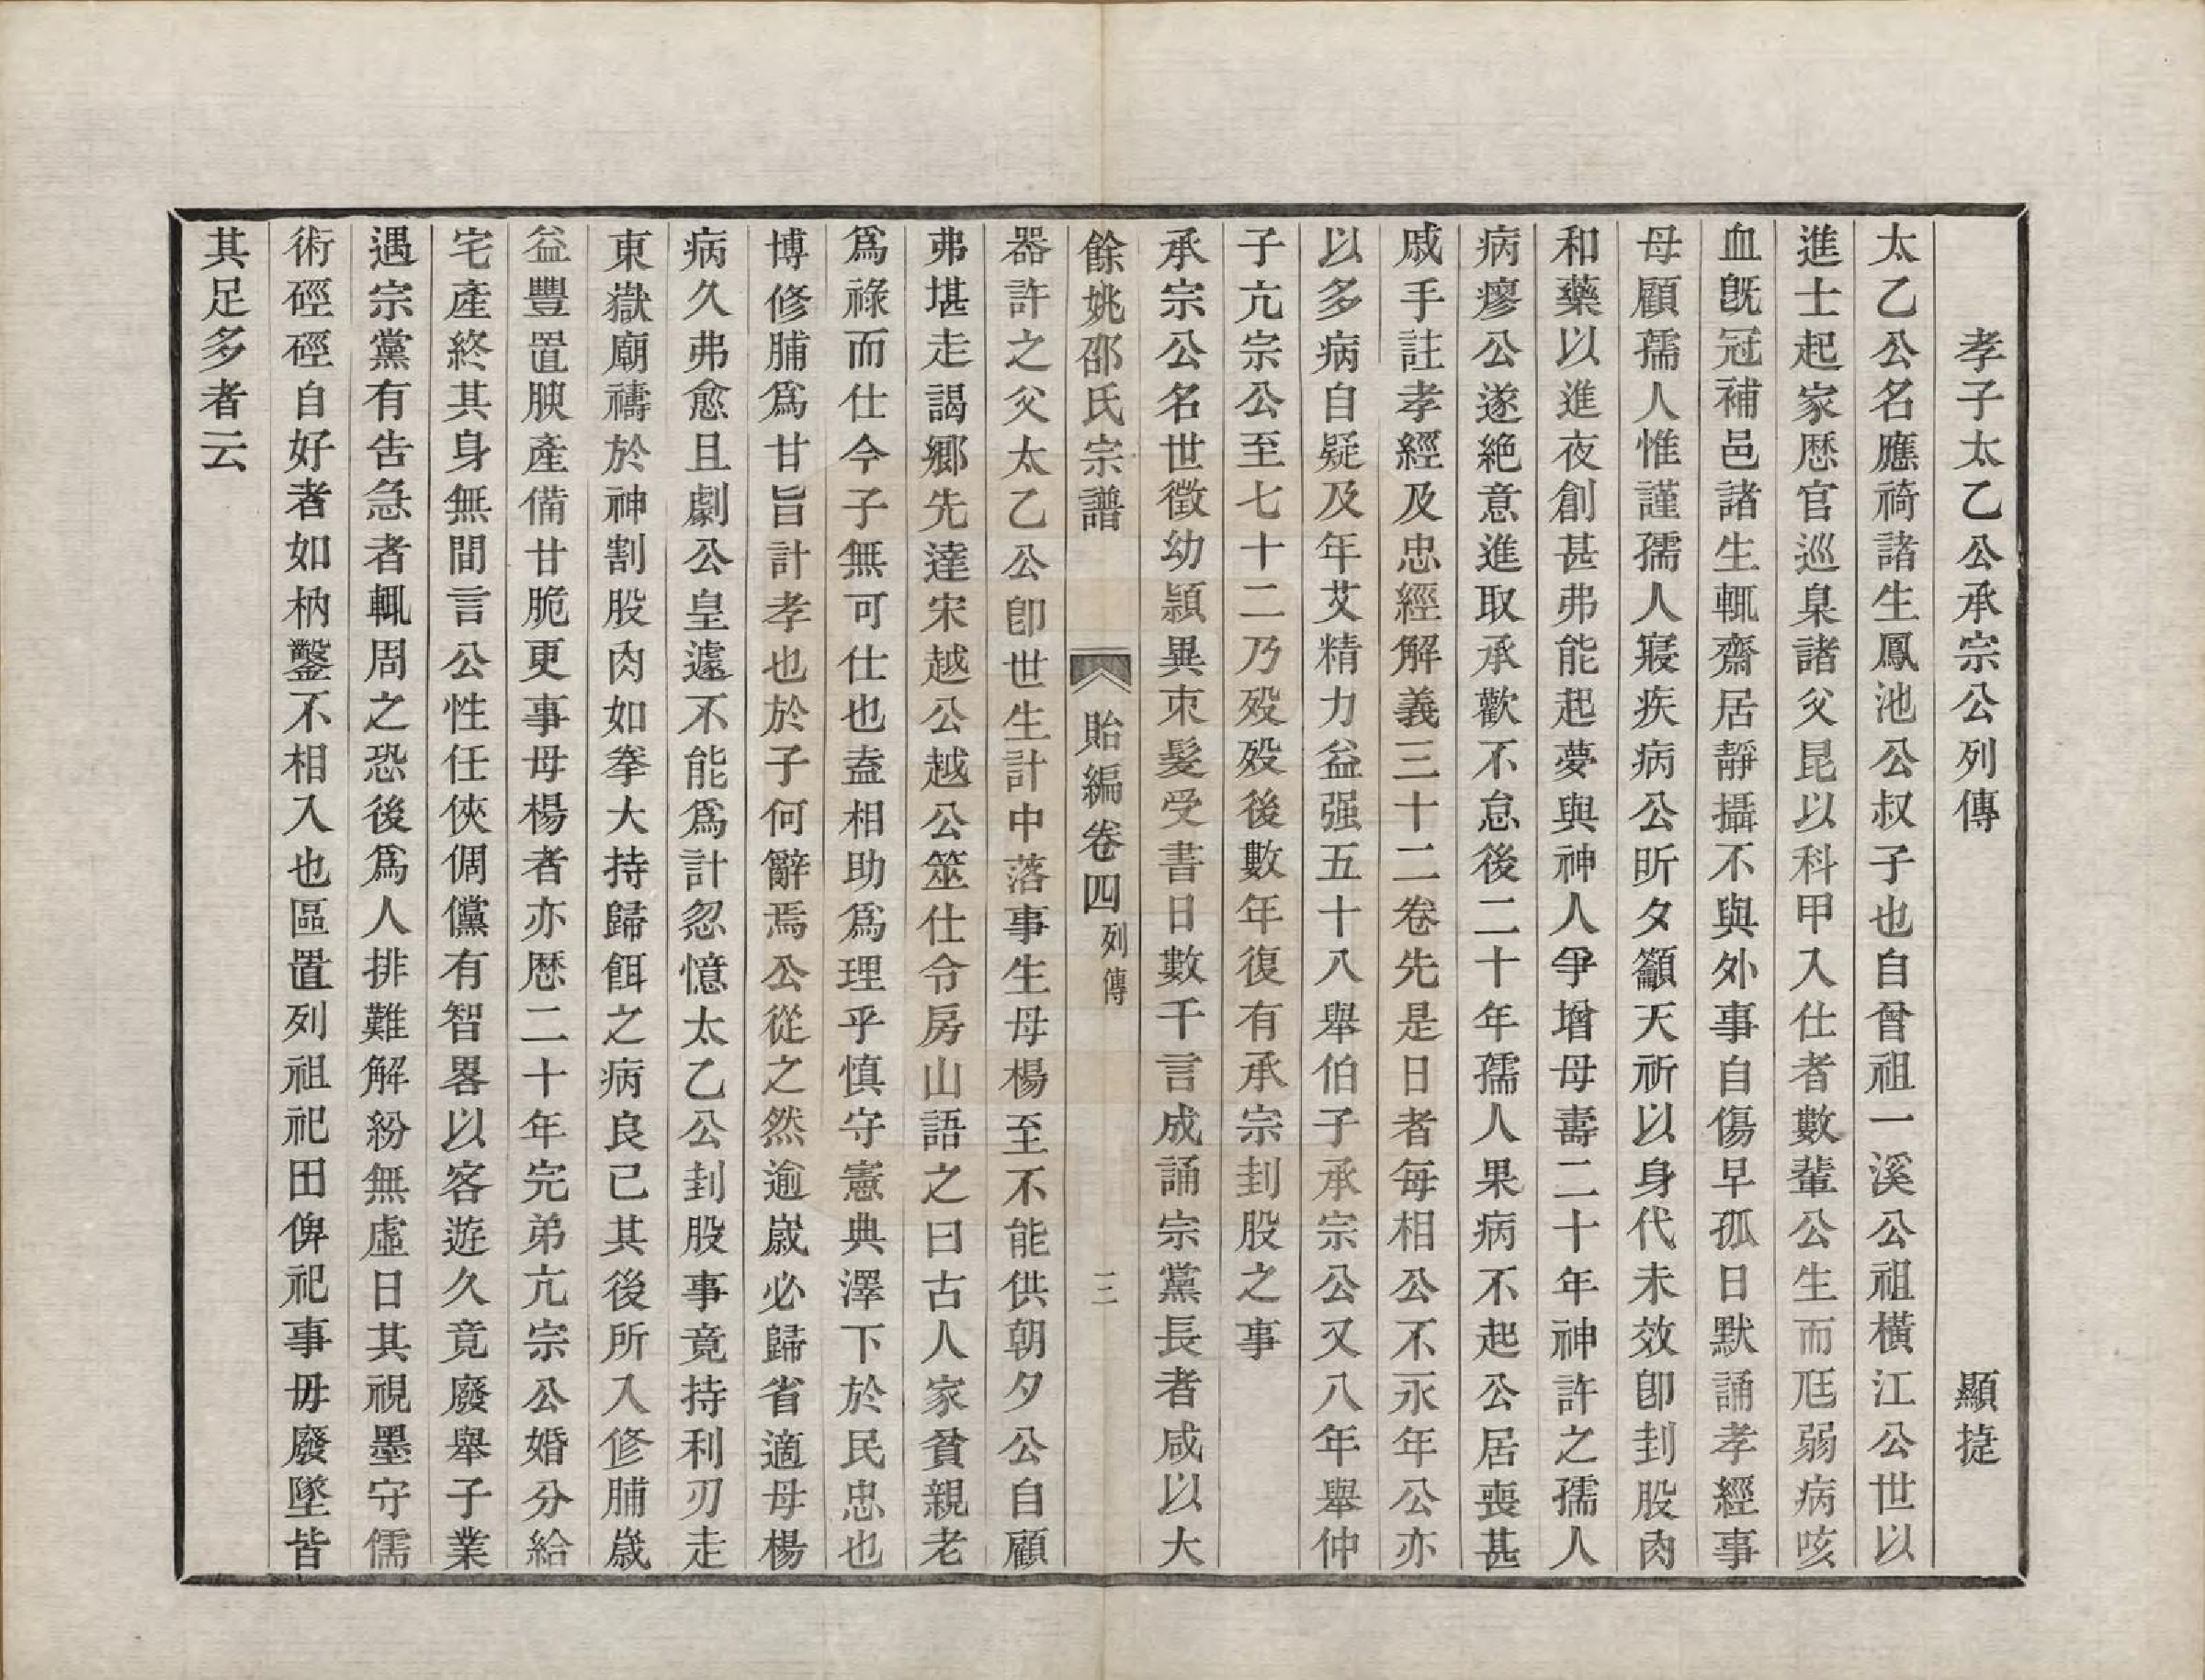 孝子太乙公承宗公列傳　顯㨗
太乙公名應祷諸生鳳池公叔子也自曾祖一溪公祖橫江公世以
進士起家歷官巡臬諸父昆以科甲入仕者數輩公生而尫弱病咳
血旣冠補邑諸生輒齋居靜攝不與外事自傷早孤日默誦孝經事
母顧孺人惟謹孺人寢疾病公昕夕籲天祈以身代未效卽刲股肉
和藥以進夜創甚弗能起夢與神人爭增母壽二十年神許之孺人
病瘳公遂絶意進取承歡不怠後二十年孺人果病不起公居喪甚
戚手註孝經及忠經解義三十二卷先是日者每相公不永年公亦
以多病自疑及年艾精力益强五十八舉伯子承宗公又八年舉仲
子亢宗公至七十二乃歿歿後數年復有承宗刲股之事
承宗公名世徵幼頴異束髮受書日數千言成誦宗黨長者咸以大
餘姚邵氏宗譜　貽編卷四列傳　三
器許之父太乙公卽世生計中落事生母楊至不能供朝夕公自顧
弗堪走謁鄉先達宋越公越公筮仕令房山語之曰古人家貧親老
爲祿而仕今子無可仕也盍相助爲理乎慎守憲典澤下於民忠也
博修脯爲甘旨計孝也於子何辭焉公從之然逾歲必歸省適母楊
病久弗愈且劇公皇遽不能爲計忽憶太乙公刲股事竟持利刃走
東嶽廟禱於神割股肉如拳大持歸餌之病良已其後所入修脯歲
益豐置腴產備甘脆更事母楊者亦歷二十年完弟亢宗公婚分給
宅產終其身無間言公性任俠倜儻有智畧以客遊久竟廢舉子業
遇宗黨有告急者輒周之恐後爲人排難解紛無虛日其視墨守儒
術硜硜自好者如枘鑿不相入也區置列祖祀田俾祀事毋廢墜皆
其足多者云